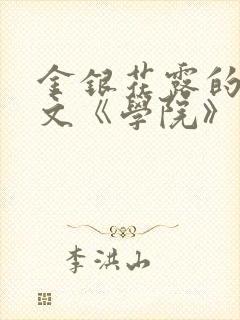 金银花露的
文《學院》
李洪山